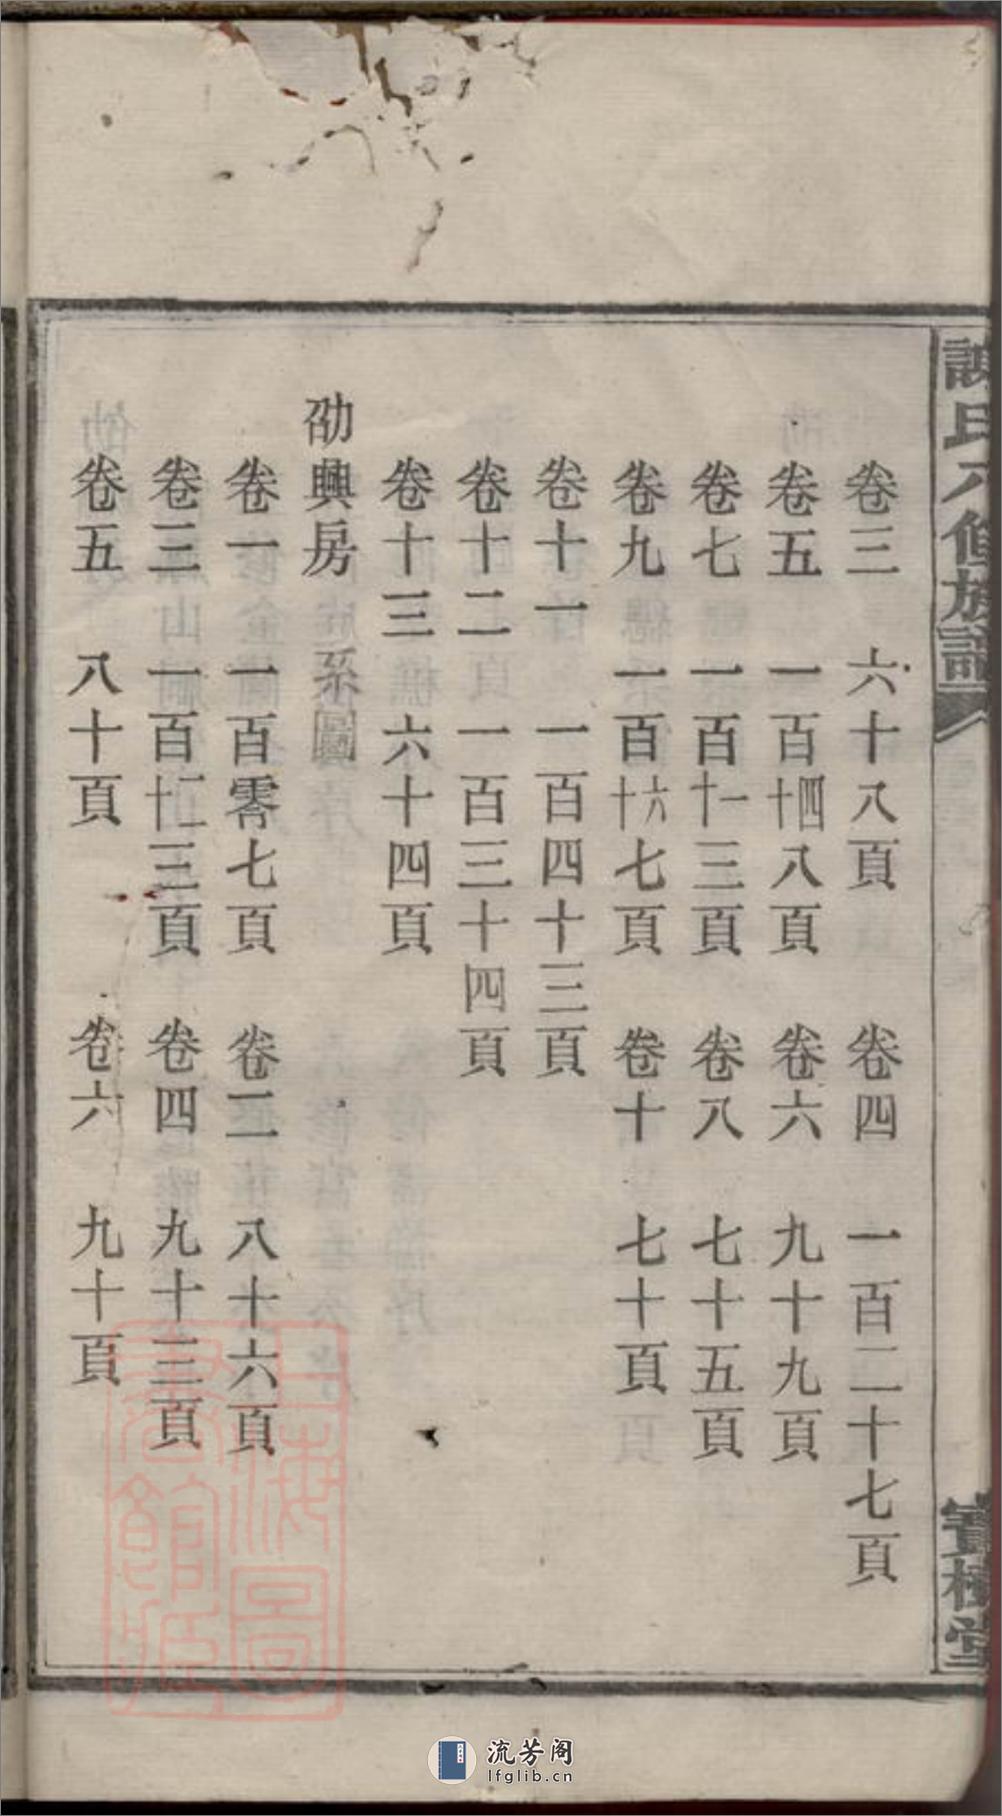 謝氏八修族譜
寶樹堂
卷三 六十八頁 卷四 一百二十七頁
卷五 一百四十八頁 卷六 九十九頁
卷七 一百一十三頁 卷八 七十五頁
卷九 一百六十七頁 卷十 七十頁
卷十一 一百四十三頁
卷十二 一百三十四頁
卷十三 六十四頁
劭興房系圖
卷一 一百零七頁 卷二 八十六頁
卷三 一百二十三頁 卷四 九十三頁
卷五 八十頁 卷六 九十頁
上海圖書館藏
流芳阁
lfglib.cn